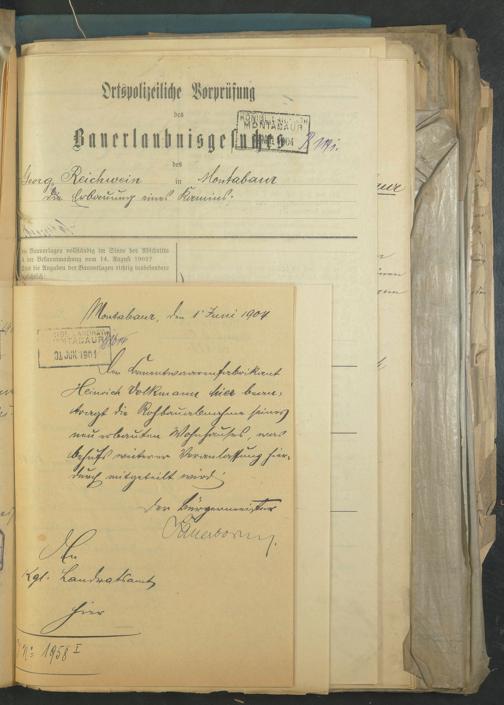 Ortspolizeiliche Vorprüfung
des
Bauerlaubnisgesuches
KÖNIGL. LANDRATH
MONTABAUR
1904
des
Georg Reichwein in Montabaur
die Erbauung eines Kamins.
Bauvorlagen vollständig im Sinne des Abschnitts
der Bekanntmachung vom 14. August 1902?
die Angaben der Bauvorlagen richtig insbesondere
Montabaur, den 1 Juni 1904
KÖNIGL. LANDRATH
MONTABAUR
01 JUN 1904
Der Cementwaarenfabrikant
Heinrich Volkmann hier bean-
tragt die Rohbauabnahme seines
neu erbauten Wohnhauses, was
behufs weiterer Veranlassung hier-
durch mitgeteilt wird.
Der Bürgermeister
Sauerborn
An
Kgl. Landratsamt
hier
No 1958 I